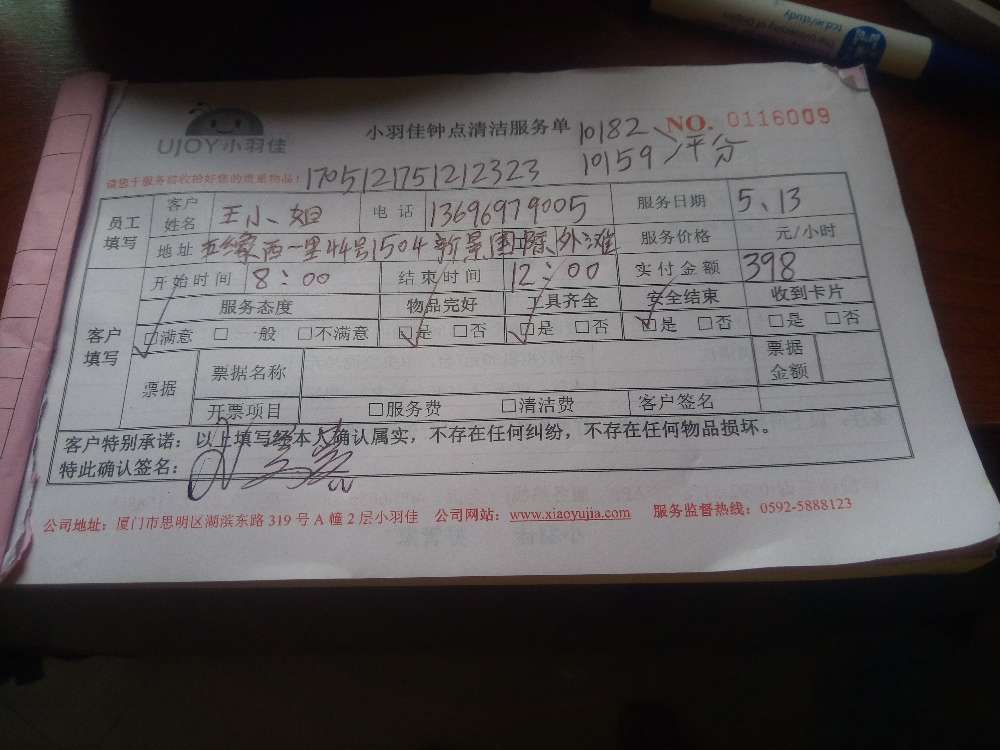 UJOY小羽佳
小羽佳钟点清洁服务单
NO. 0116009
10182
10159 平分
请您于服务前收拾好您的贵重物品！ 1705121751212323
员工填写 客户姓名 王小姐 电话 13696979005 服务日期 5、13
地址 五缘西一里44号1504新景国际外滩 服务价格 元/小时
开始时间 8：00 结束时间 12：00 实付金额 398
客户填写 服务态度 物品完好 工具齐全 安全结束 收到卡片
☑满意 □一般 □不满意 ☑是 □否 ☑是 □否 ☑是 □否 □是 □否
票据 票据名称 票据金额
开票项目 □服务费 □清洁费 客户签名
客户特别承诺：以上填写经本人确认属实，不存在任何纠纷，不存在任何物品损坏。
特此确认签名：
公司地址：厦门市思明区湖滨东路 319 号 A 幢 2 层小羽佳 公司网站：www.xiaoyujia.com 服务监督热线：0592-5888123